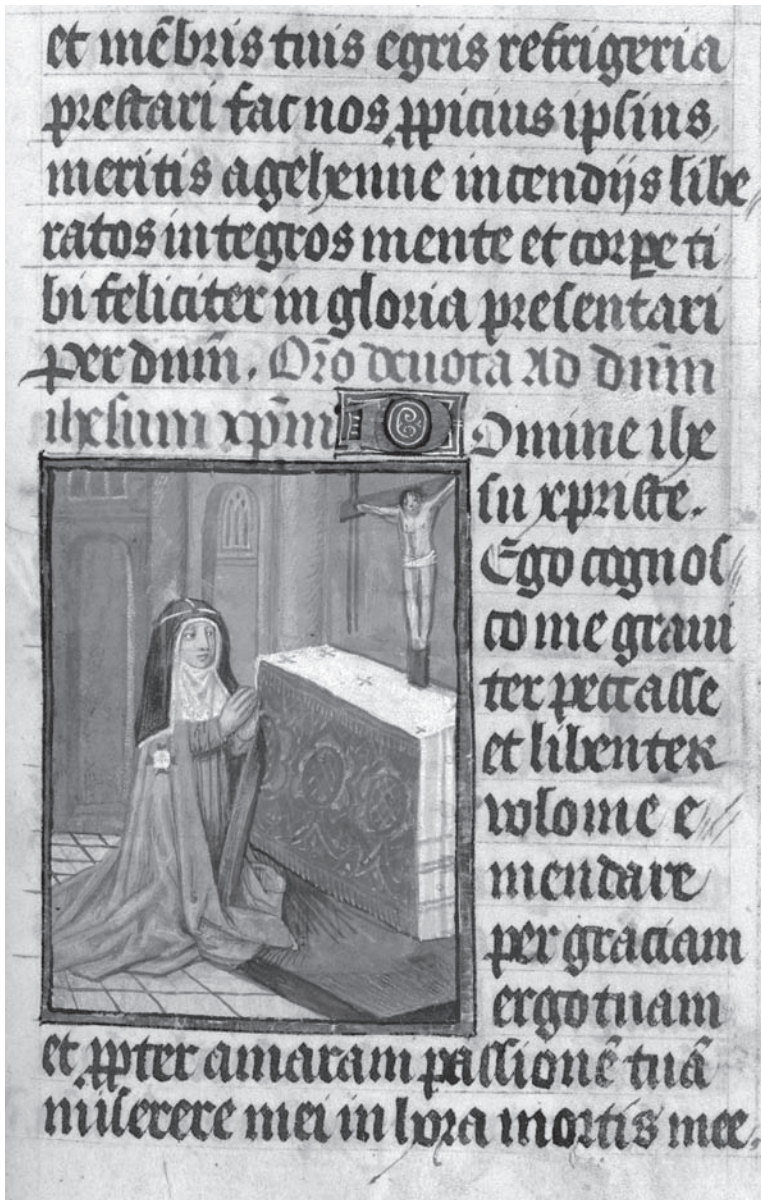 et mēbris tuis egris refrigeria
prestari fac nos ꝓpicius ipsius
meritis a gehenne incendijs libe
ratos integros mente et corpe ti
bi feliciter in gloria presentari
Per dnm̄. Or̄o deuota Ad dnm̄
ihesum xp̄m
Omine ihe
su xpriste.
Ego cognos
co me graui
ter peccasse
et libenter
volo me e
mendare
per graciam
ergo tuam
et ꝓpter amaram passionē tuā
miserere mei in hora mortis mee.